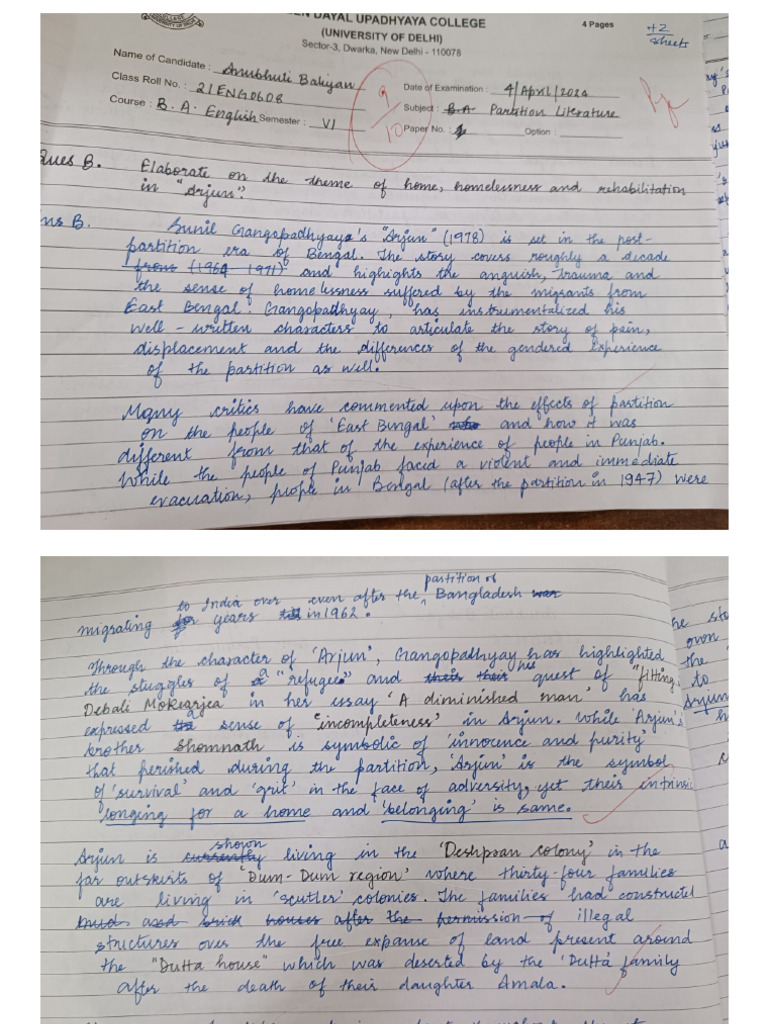 DAYAL UPADHYAYA COLLEGE
(UNIVERSITY OF DELHI)
Sector-3, Dwarka, New Delhi - 110078
4 Pages
+2
sheets
Name of Candidate : Anubhuti Baliyan
Class Roll No. : 21/ENG0608
Course : B.A. English Semester : VI
9/10
Date of Examination : 4/April/2024
Subject : B.A Partition Literature
Paper No. 1 Option :
Ques B. Elaborate on the theme of home, homelessness and rehabilitation
in "Arjun".
Ans B. Sunil Gangopadhyaya's "Arjun" (1978) is set in the post-
partition era of Bengal. The story covers roughly a decade
from (1964 1971) and highights the anguish, trauma and
the sense of homelessness suffered by the migrants from
East Bengal. Gangopadhyay, has instrumentalized his
well-written characters to articulate the story of pain,
displacement and the differences of the gendered experience
of the partition as well.
Many critics have commented upon the effects of partition
on the people of 'East Bengal' and how it was
different from that of the experience of people in Punjab.
While the people of Punjab faced a violent and immediate
evacuation, people in Bengal (after the partition in 1947) were
migrating to India over years even after the partition of Bangladesh war
in 1962.
Through the character of 'Arjun', Gangopadhyay has highlighted
the stuggles of a "refugee" and their his quest of "fitting.
Debali Mokearjea in her essay 'A diminished man' has
expressed a sense of 'incompleteness' in Arjun. While 'Arjun's
brother Shomnath is symbolic of 'innocence and purity'
that perished during the partition, 'Arjun' is the symbol
of 'survival' and 'grit' in the face of adversity, yet their intrinsic
'longing for a home and 'belonging' is same.
Arjun is currently shown living in the 'Deshpran colony' in the
far outskirts of 'Dum-Dum region' where thirty-four families
are living in 'scutler' colonies. The families had constructed
mud and brick houses after the permission of illegal
structures over the free expanse of land present around
the "Dutta house" which was deserted by the 'Dutta' family
after the death of their daughter Amala.